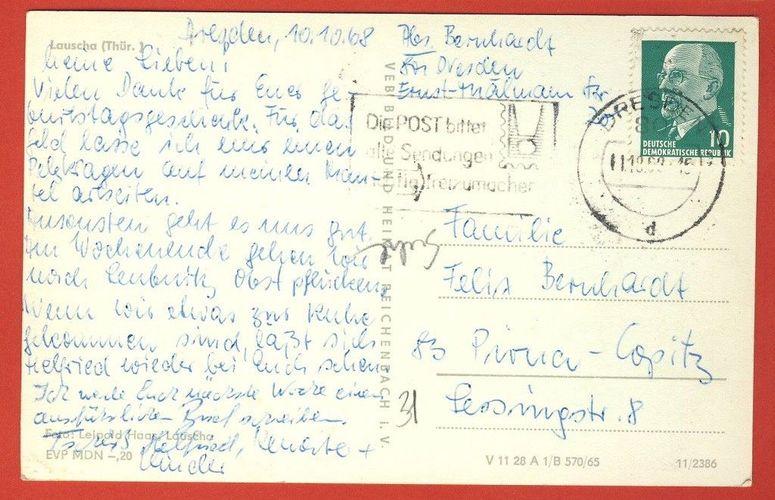 Lauscha (Thür.)
Dresden, 10.10.68
Meine Lieben!
Vielen Dank für Euer Ge-
burtstagsgeschenk. Für das
Geld lasse ich mir einen
Pelzkragen auf meinen Man-
tel arbeiten.
Ansonsten geht es uns gut.
Am Wochenende gehen wir
nach Leubnitz Obst pflücken.
Wenn wir etwas zur Ruhe
gekommen sind, läßt sich
Helfried wieder bei Euch sehen.
Ich werde Euch nächste Woche einen
ausführlichen Brief schreiben.
Es grüßt Helfried, +
Kinder
Foto: Leipold Haag/Lauscha
EVP MDN –,20
VEB BILD UND HEIMAT REICHENBACH I. V.
Abs. Bernhardt
Dresden
Ernst-Thälmann
Die POST bittet
alle Sendungen
freizumachen
DRESDEN
d
10
DEUTSCHE
DEMOKRATISCHE REPUBLIK
Familie
Felix Bernhardt
83 Pirna-Copitz
Lessingstr. 8
31
V 11 28 A 1/B 570/65
11/2386